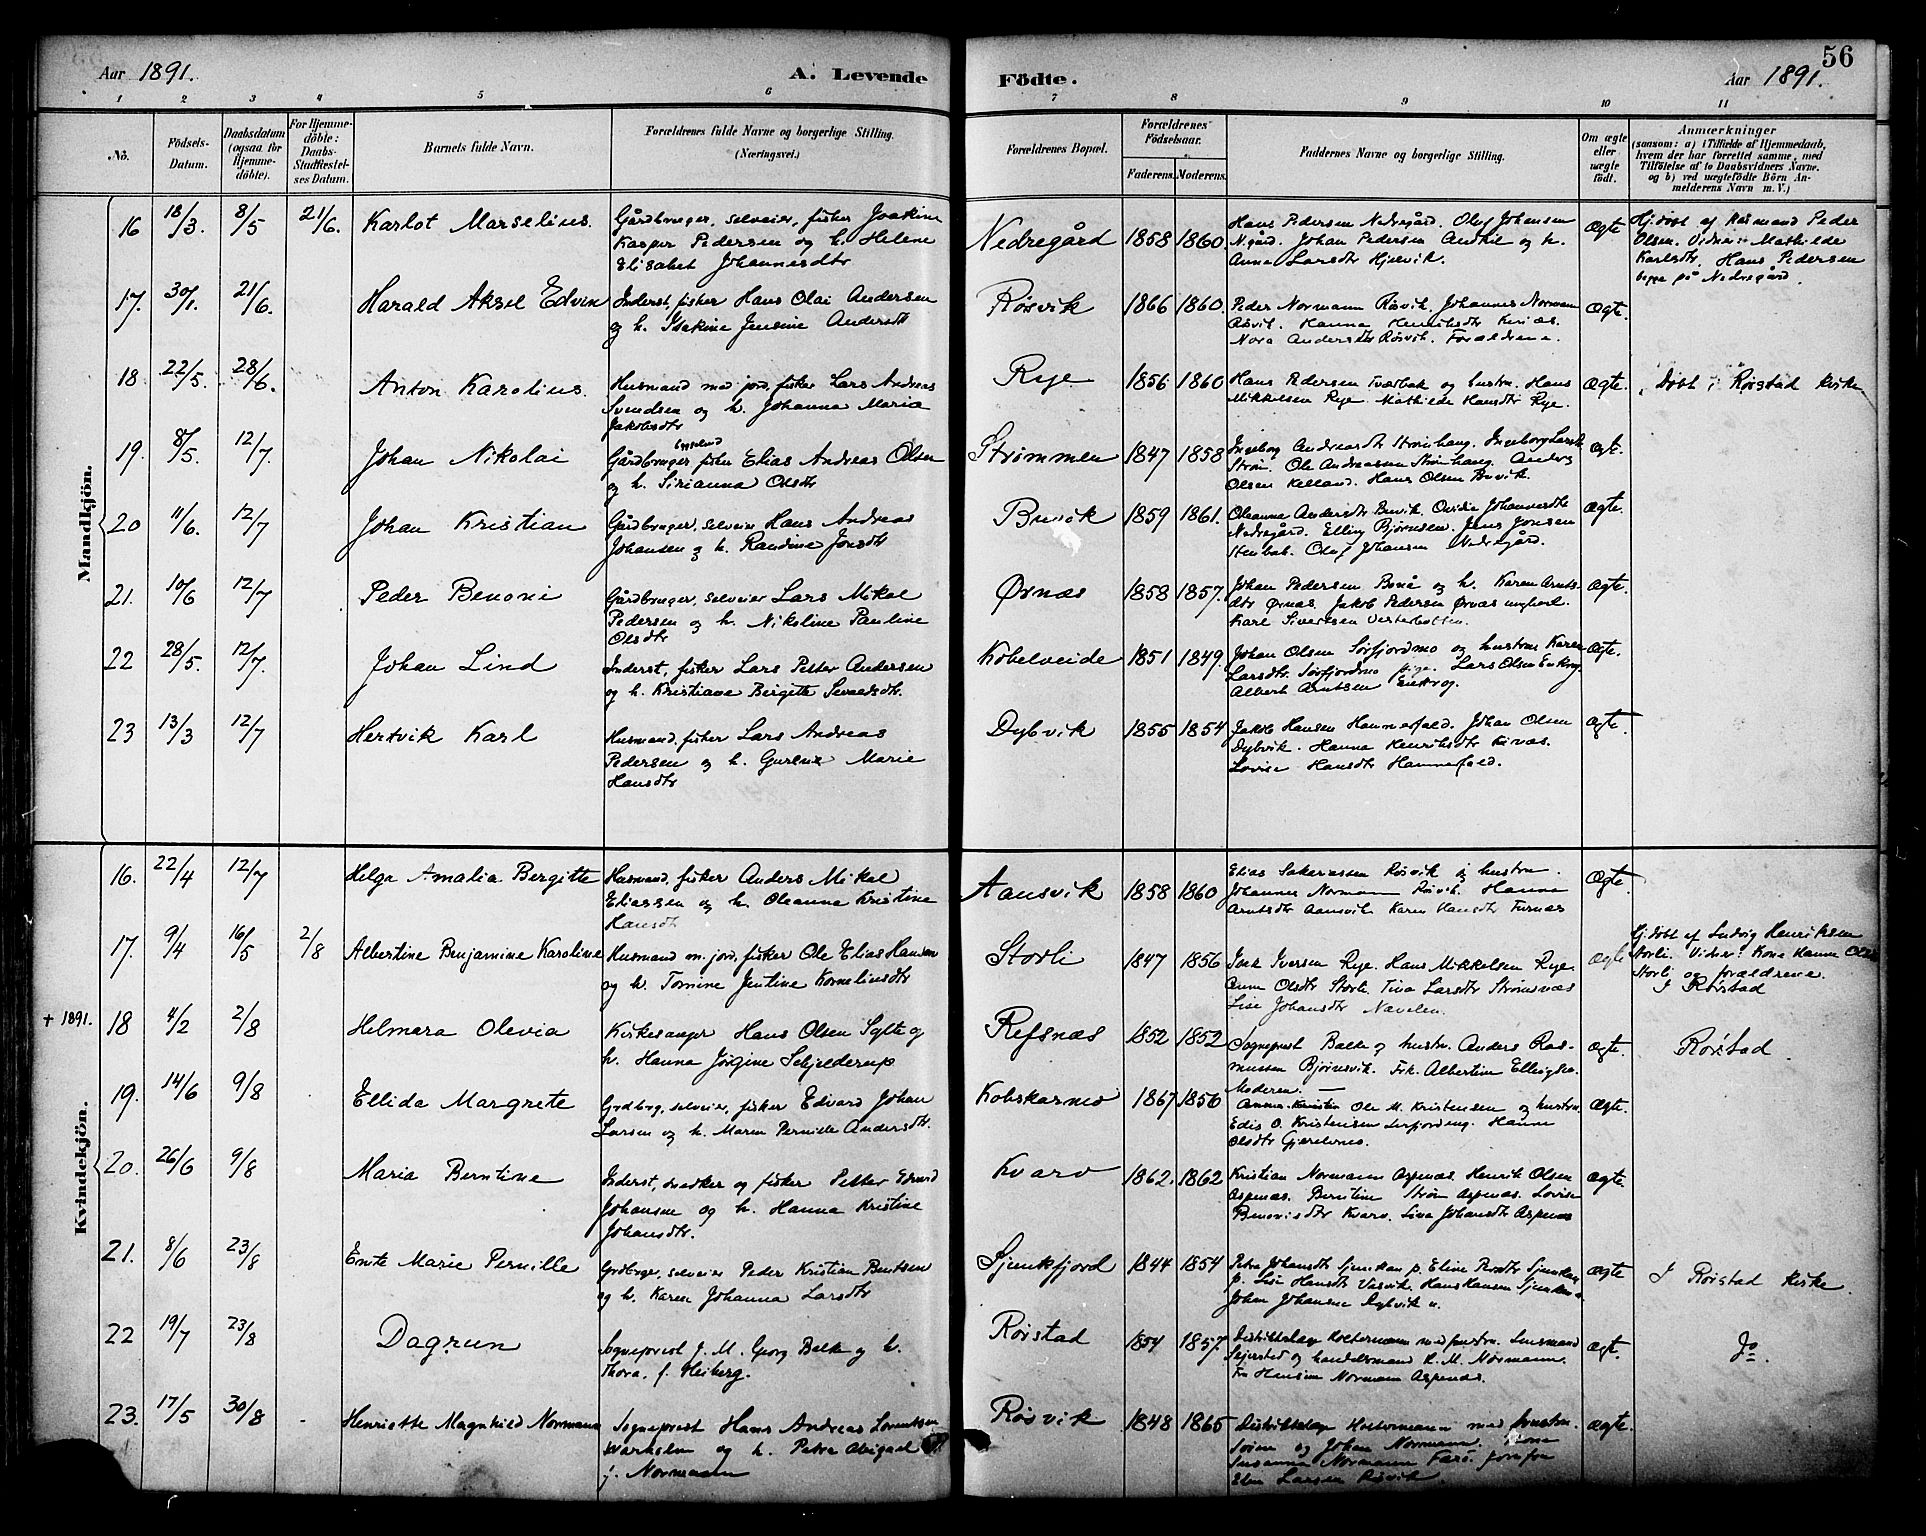 56
Aar 1891.
A. Levende
Födte.
Aar 1891.
1 2 3 4 5 6 7 8 9 10 11
No.
Födsels-
Datum.
Daabsdatum
(ogsaa for
Hjemme-
döbte).
For Hjemme-
döbte:
Daabs-
Stadfæstel-
ses Datum.
Barnets fulde Navn.
Forældrenes fulde Navne og borgerlige Stilling.
(Næringsvei.)
Forældrenes Bopæl.
Forældrenes
Födselsaar.
Faderens. Moderens.
Faddernes Navne og borgerlige Stilling.
Om ægte
eller
uægte
födt.
Anmærkninger
(saasom: a) i Tilfælde af Hjemmedaab,
hvem der har forrettet samme, med
Tilföielse af to Daabsvidners Navne,
og b) ved uægtefödte Börn An-
melderens Navn m. V.)
Mandkjön.
16 18/3. 8/5 21/6. Karlot Marselius.
Gårdbruger, selveier, fisker Joakim
Kasper Pedersen og h. Helene
Elisabet Johannesdtr
Nedregård 1858 1860
Hans Pedersen Nedregård. Oluf Johansen
N.gård. Johan Pedersen og h.
Anna Larsdtr Hjelvik.
Ægte
Hj.døbt af Husmand Peder
Olsen. Vidner: Mathilde
Karlsdtr, Hans Pedersen
begge på Nedregård.
17. 30/1. 21/6. Harald Aksel Edvin
Inderst, fisker Hans Olai Andersen
og h. Isakine Jensine Andersdtr
Røsvik 1866 1860.
Peder Normann Røsvik. Johannes Normann
Røsvik. Hanna Henriksdtr
Nora Andersdtr Røsvik. Forældrene.
Ægte.
18 22/5. 28/6. Anton Karolius.
Husmand med jord, fisker Lars Andreas
Svendsen og h. Johanna Maria
Jakobsdtr
Rye 1856 1860
Hans Pedersen Tverbak og hustru. Hans
Mikkelsen Rye. Mathilde Hansdtr Rye.
Ægte.
Døbt i Røistad kirke
19. 8/5. 12/7. Johan Nikolai
Gårdbruger, fisker Elias Andreas Olsen
og h. Sirianna Olsdtr
Strømmen 1847 1858
Ingeborg Andreasdtr Strømhaug. Ingeborg Larsdtr
Strøm. Ole Andreassen Strømhaug. Anders
Olsen Helland. Hans Olsen
Ægte.
20 11/6. 12/7 Johan Kristian
Gårdbruger, selveier Hans Andreas
Johansen og h. Randine Jonsdtr
Buvik 1859 1861.
Oleanna Andersdtr Buvik. Ovidia Johannesdtr
Nedregård. Elling Bjørnsen. Jens Jonsen
Stenbak. Oluf Johansen Nedregård.
Ægte.
21. 10/6 12/7 Peder Benoni
Gårdbruger, selveier Lars Mikal
Pedersen og h. Nikoline Pauline
Olsdtr
Ørnæs 1858 1857.
Johan Pedersen Bonå og h. Karen Arnts-
dtr Ørnæs. Jakob Pedersen Ørnæs ungkarl.
Karl Sivertsen Vesterbotten.
Ægte.
22 28/5. 12/7. Johan Lind
Inderst, fisker Lars Petter Andersen
og h. Kristiane Bergitte
Kobelveide 1851 1849.
Johan Olsen Sørfjordmo og hustru Karen
Larsdtr. Sørfjordmo pige. Lars Olsen
Albert Arntsen
Ægte.
23 13/3 12/7 Hertvik Karl
Husmand, fisker Lars Andreas
Pedersen og h. Gurene Marie
Hansdtr
Dybvik 1855 1854
Jakob Hansen Hammerfald. Johan Olsen
Dybvik. Hanna Henriksdtr
Lovise Hansdtr Hammerfald.
Ægte.
Kvindekjön.
16. 22/4 12/7 Helga Amalia Bergitte
Husmand, fisker Anders Mikal
Eliassen og h. Oleanna Kristine
Hansdtr
Aansvik 1858 1860
Elias Sakariassen Røsvik og hustru.
Johannes Normann Røsvik. Hanna
Arntsdtr Aansvik Karen Hansdtr Furnæs
Ægte.
17. 9/4 16/5 2/8 Albertine Benjamine Karoline
Husmand m. jord, fisker Ole Elias Hansen
og h. Tomine Jentine Korneliusdtr
Storli 1847 1856
Iver Iversen Rye. Hans Mikkelsen Rye.
Anne Olsdtr Storli. Tina Larsdtr Strømsnæs
Lise Johansdtr Nævelen.
Ægte
Hj.døbt af Ludvig Henriksen
Storli. Vidner: Kone Hanna Olsdtr
Storli og forældrene.
I Røistad
+ 1891. 18 4/2 2/8 Helmara Olevia
Kirkesanger Hans Olsen Sylte og
h. Hanna Jørgine Schjelderup
Refsnæs 1852 1852
Sogneprest Balke og hustru. Anders Ras-
mussen Bjørnsvik. Frk. Albertine Ellingsen.
Moderen.
Ægte.
Røistad.
19. 14/6 9/8 Ellida Margrete
Grdbrg, selveier, fisker Edvard Johan
Larsen og h. Maren Pernille Andersdtr.
Kobskarmo 1867 1856
Ole M. Kristensen og hustru
Edis O. Kristensen Hanna
Olsdtr Gjerelvnes.
Ægte.
20. 26/6 9/8 Maria Berntine
Inderst, snedker og fisker Petter Edvard
Johansen og h. Hanna Kristine
Johansdtr.
Kvarv 1862. 1862
Kristian Normann Aspenæs. Henrik Olsen
Aspenæs. Berntine Strøm Aspenæs. Lovise
Benonisdtr Kvarv. Lina Johansdtr Aspenæs
Ægte.
21. 8/6 23/8 Emte Marie Pernille
Grdbrgr, selveier Peder Kristian Bentsen
og h. Karen Johanna Larsdtr
Sjunkfjord 1844 1854
Petra Johansdtr Sjunkan p. Eline Sjunkan
p. Lise Hansdtr Vasvik. Hans Hansen Sjunkan
Johan Johansen Dybvik u.
Ægte
I Røistad kirke.
22 19/7 23/8 Dagrun
Sogneprest J. M. Georg Balke og h.
Thora, f. Heiberg.
Røistad 1854 1857.
Distriktslæge Holtermann med hustru. Lensmand
Sejersted og handelsmand R. M. Normann.
Fru Hansine Normann Aspenæs.
Ægte.
Jo.
23. 17/5 30/8 Henriette Magnhild Normann
Sogneprest Hans Andreas Lorentsen
og h. Petra Abigael
f. Normann
Røsvik 1848 1865
Distriktslæge Holtermann med hustru.
Søren og Johan Normann. Kone
Susanna Normann Jomfru
Elen Larsen Røsvik.
Ægte.